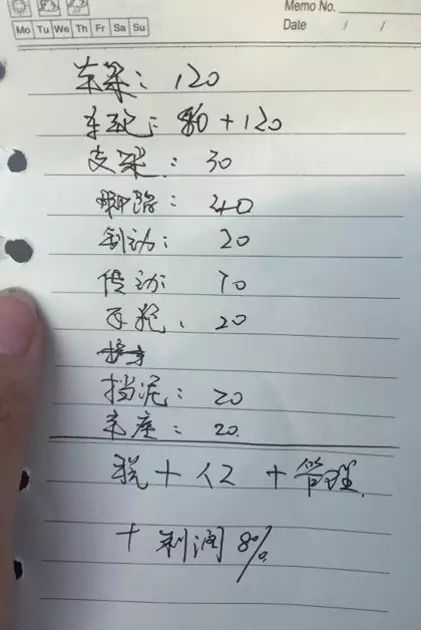 Memo No.
Mo Tu We Th Fr Sa Su
Date / /
车架：120
车轮：80+120
支架：30
脚踏：40
制动：20
传动：70
20
挡泥：20
车座：20
税+人工+管理
+利润8%